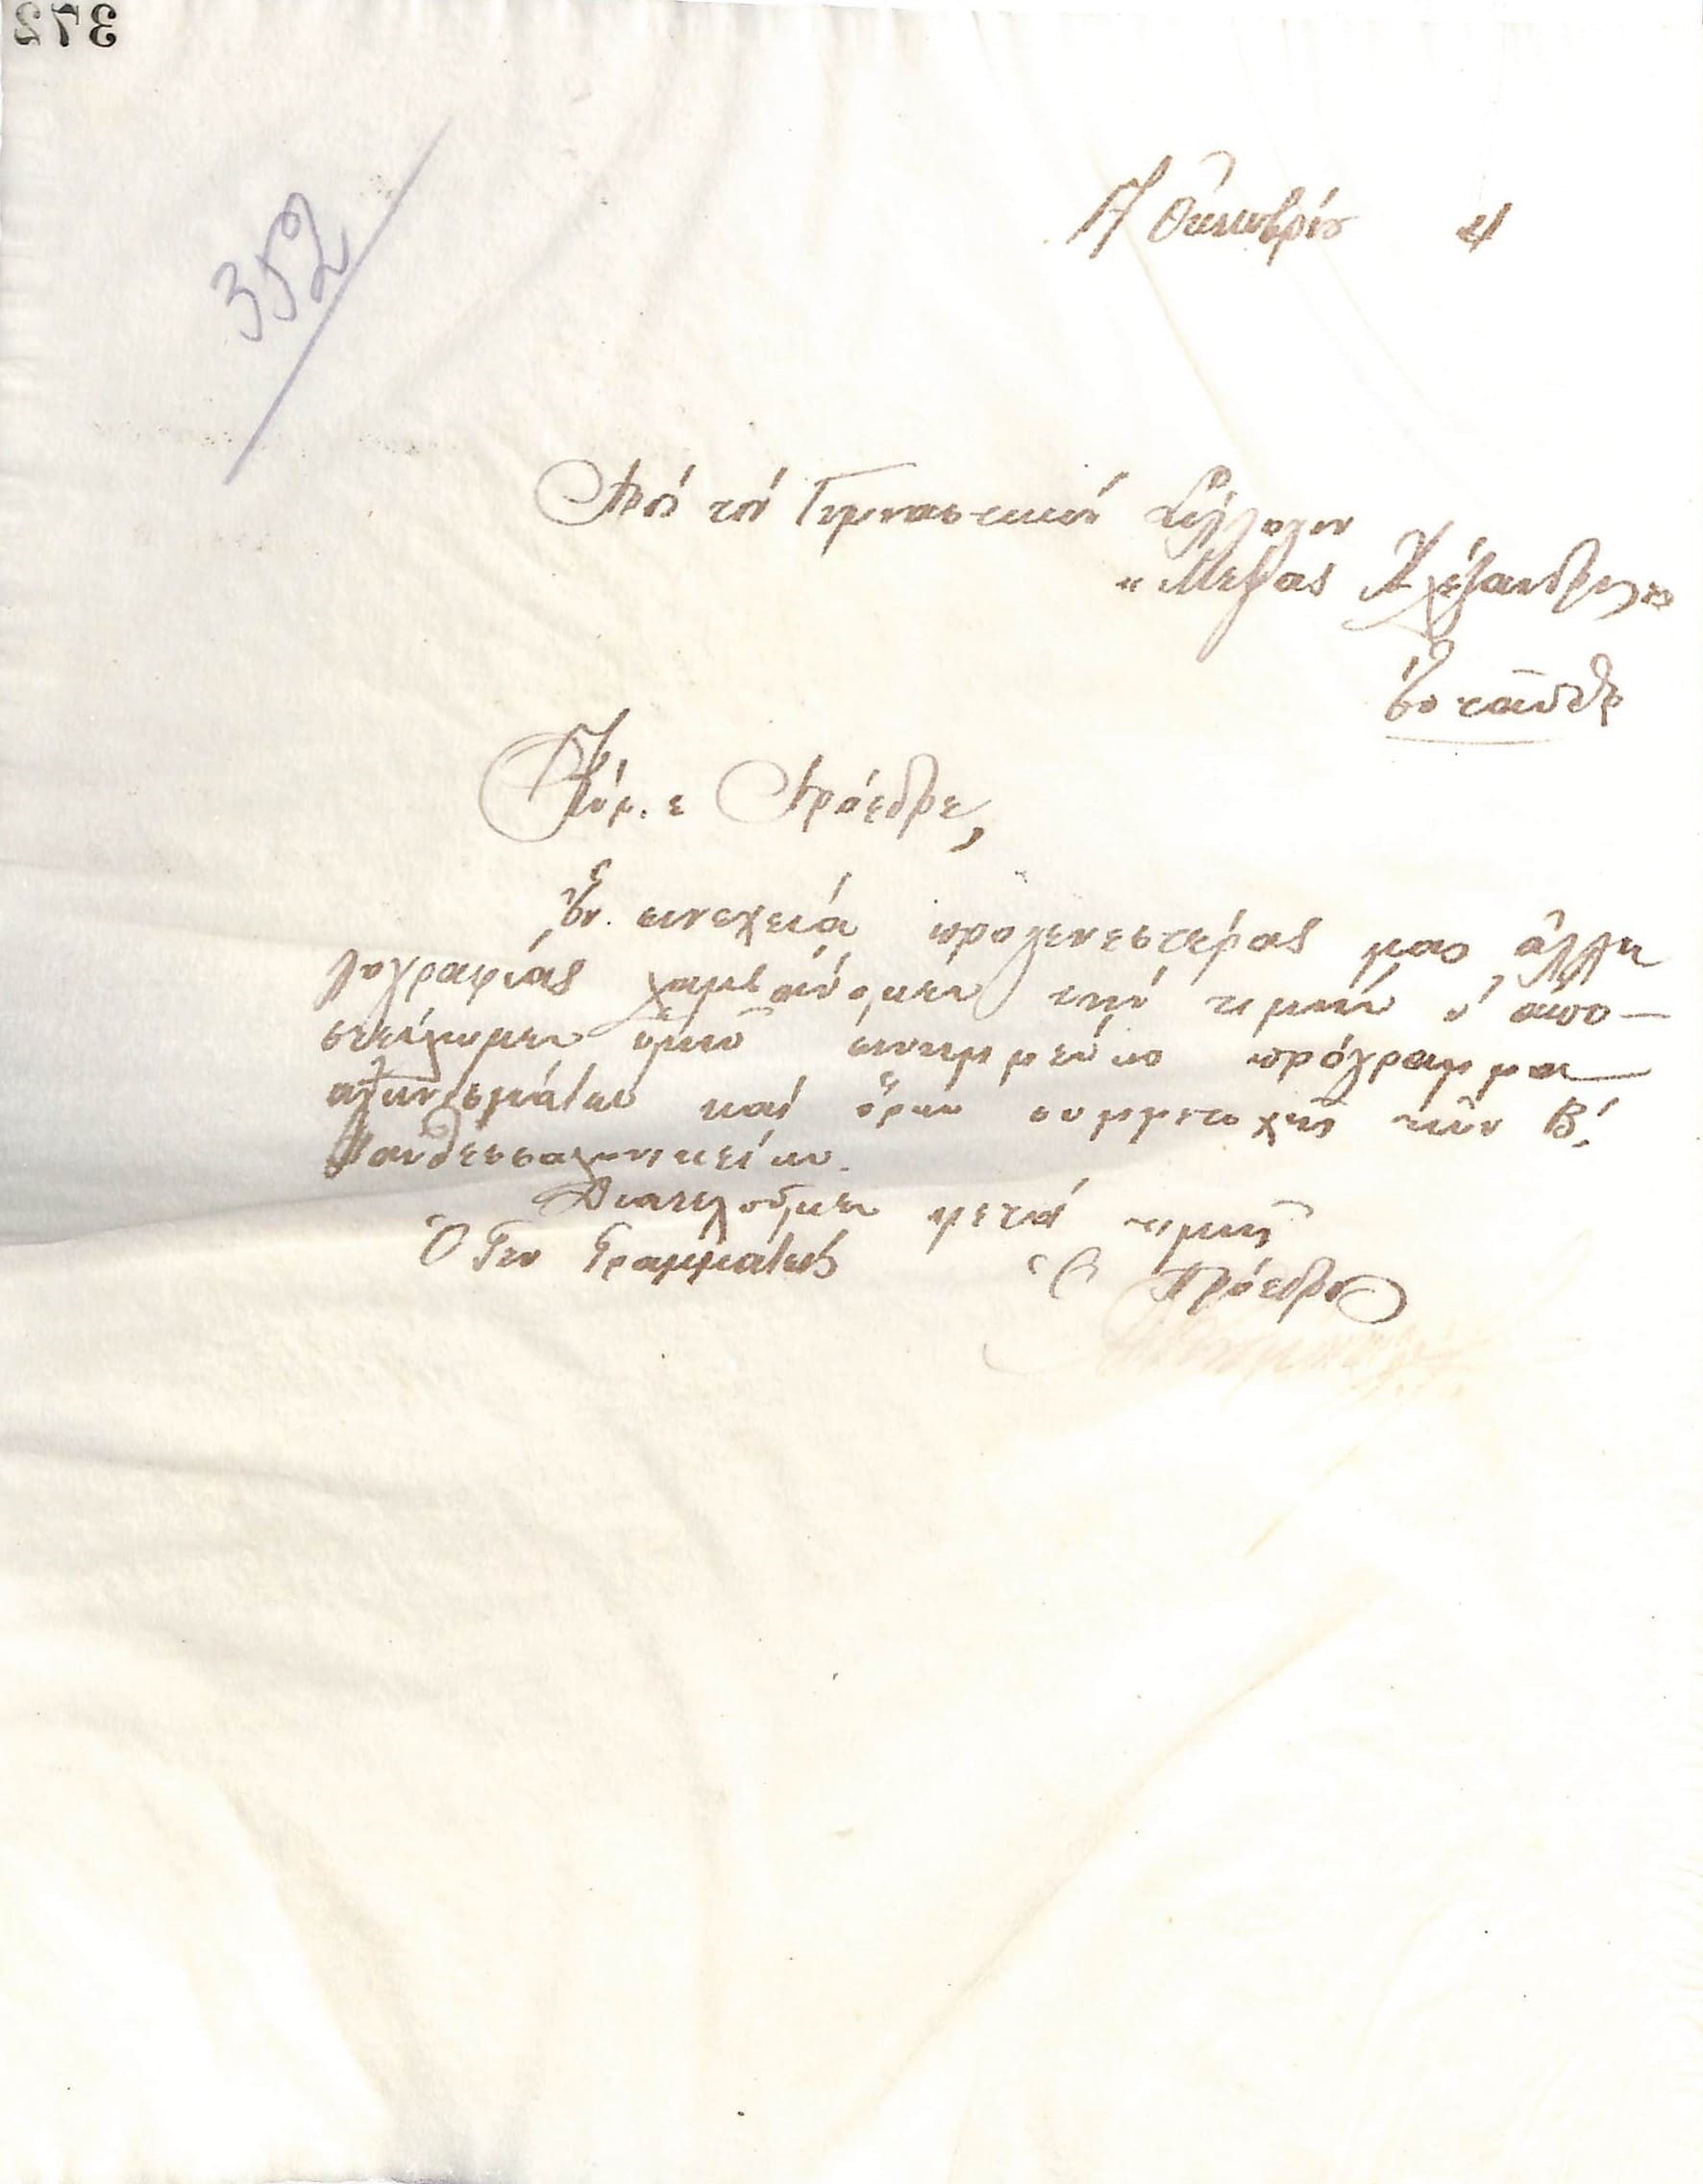 372
352
17 Ὀκτωβρίου 4
Πρὸς τὸν Γυμναστικὸν Σύλλογον
"Μέγας Ἀλέξανδρος"
Ἐνταῦθα
Κύρ.ε Πρόεδρε,
Ἐν συνεχείᾳ προγενεστέρας μας ἀλλη
λογραφίας λαμβάνομεν τὴν τιμὴν ν' ἀπο-
στείλωμεν ὑμῖν συνημμένως πρόγραμμα
ἀγωνισμάτων καὶ ὅρων συμμετοχῆς τῶν Β΄.
Πανθεσσαλονικείων.
Διατελοῦμεν μετὰ τιμῆς
Ὁ Γεν Γραμματεὺς Ὁ Πρόεδρος